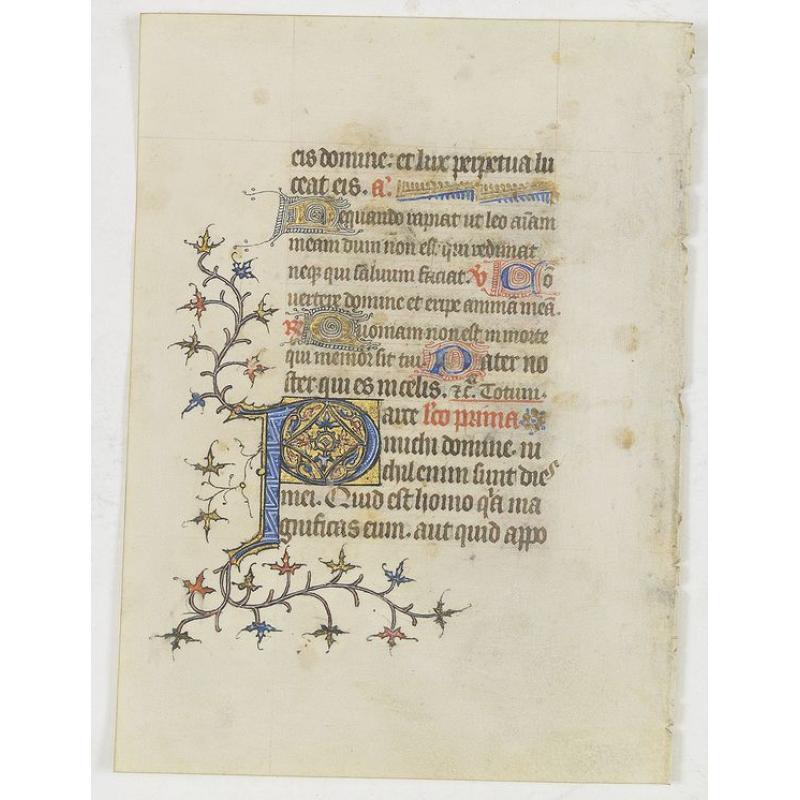 eis domine: et lux perpetua lu
ceat eis. a.
Nequando rapiat ut leo aīam
meam dum non est qui redimat
neq; qui saluum faciat. V Cō
uertere domine et eripe animā meā.
R Quoniam non est in morte
qui memor sit tui Pater no
ster qui es in celis. &c. Totum.
Parce lc̄o prima
michi domine. ni
chil enim sunt dies
mei. Quid est homo q̄a ma
gnificas eum. aut quid appo